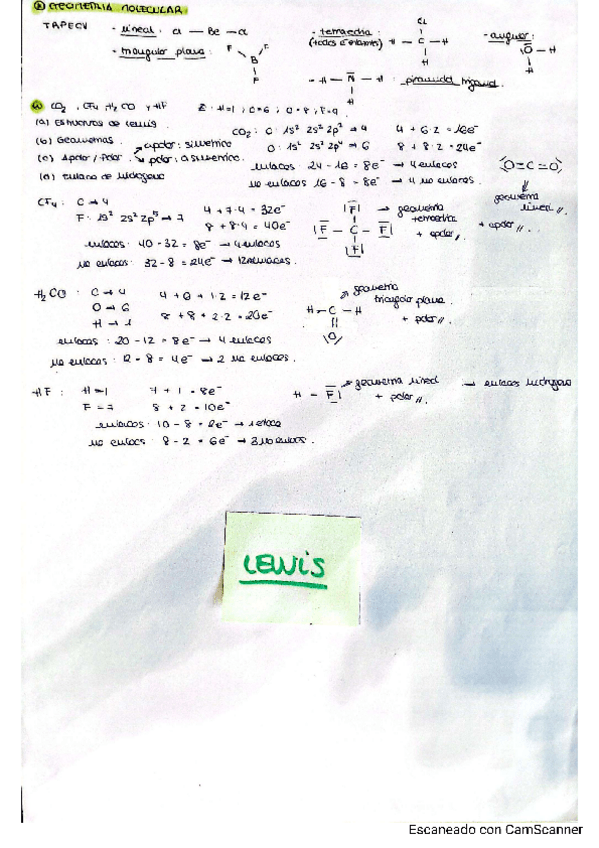 GEOMETRIA MOLECULAR
TRPECV - lineal: Cl — Be — Cl
- tetraedrica:
- angular:
- triangular plana:
- piramidal trigonal
CO2, CF4, H2CO y HF Z: H=1; C=6; O=8; F=9
(a) Estructuras de Lewis
(b) Geometrias
(c) Apolar/Polar apolar: simétrico
polar: asimétrico
(d) Enlace de hidrógeno
CO2: C: 1s² 2s² 2p² → 4 4 + 6·2 = 16e⁻
O: 1s² 2s² 2p⁴ → 6 8 + 8·2 = 24e⁻
enlaces: 24 - 16 = 8e⁻ → 4 enlaces
no enlaces: 16 - 8 = 8e⁻ → 4 no enlaces
O=C=O
geometria lineal
+ apolar
CF4: C → 4 4 + 7·4 = 32e⁻
F: 1s² 2s² 2p⁵ → 7 8 + 8·4 = 40e⁻
enlaces: 40 - 32 = 8e⁻ → 4 enlaces
no enlaces: 32 - 8 = 24e⁻ →
geometria
+ apolar
H2CO: C → 4
O → 6
H → 1
8 + 8 + 2·2 = 20e⁻
enlaces: 20 - 12 = 8e⁻ → 4 enlaces
no enlaces: 12 - 8 = 4e⁻ → 2 no enlaces.
geometria
plana
+ polar
HF: H = 1 7 + 1 = 8e⁻
F = 7 8 + 2 = 10e⁻
enlaces: 10 - 8 = 2e⁻ → 1 enlace
no enlaces: 8 - 2 = 6e⁻ → 3 no enlaces.
H - F
geometria lineal → enlaces hidrógeno
+ polar
LEWIS
Escaneado con CamScanner